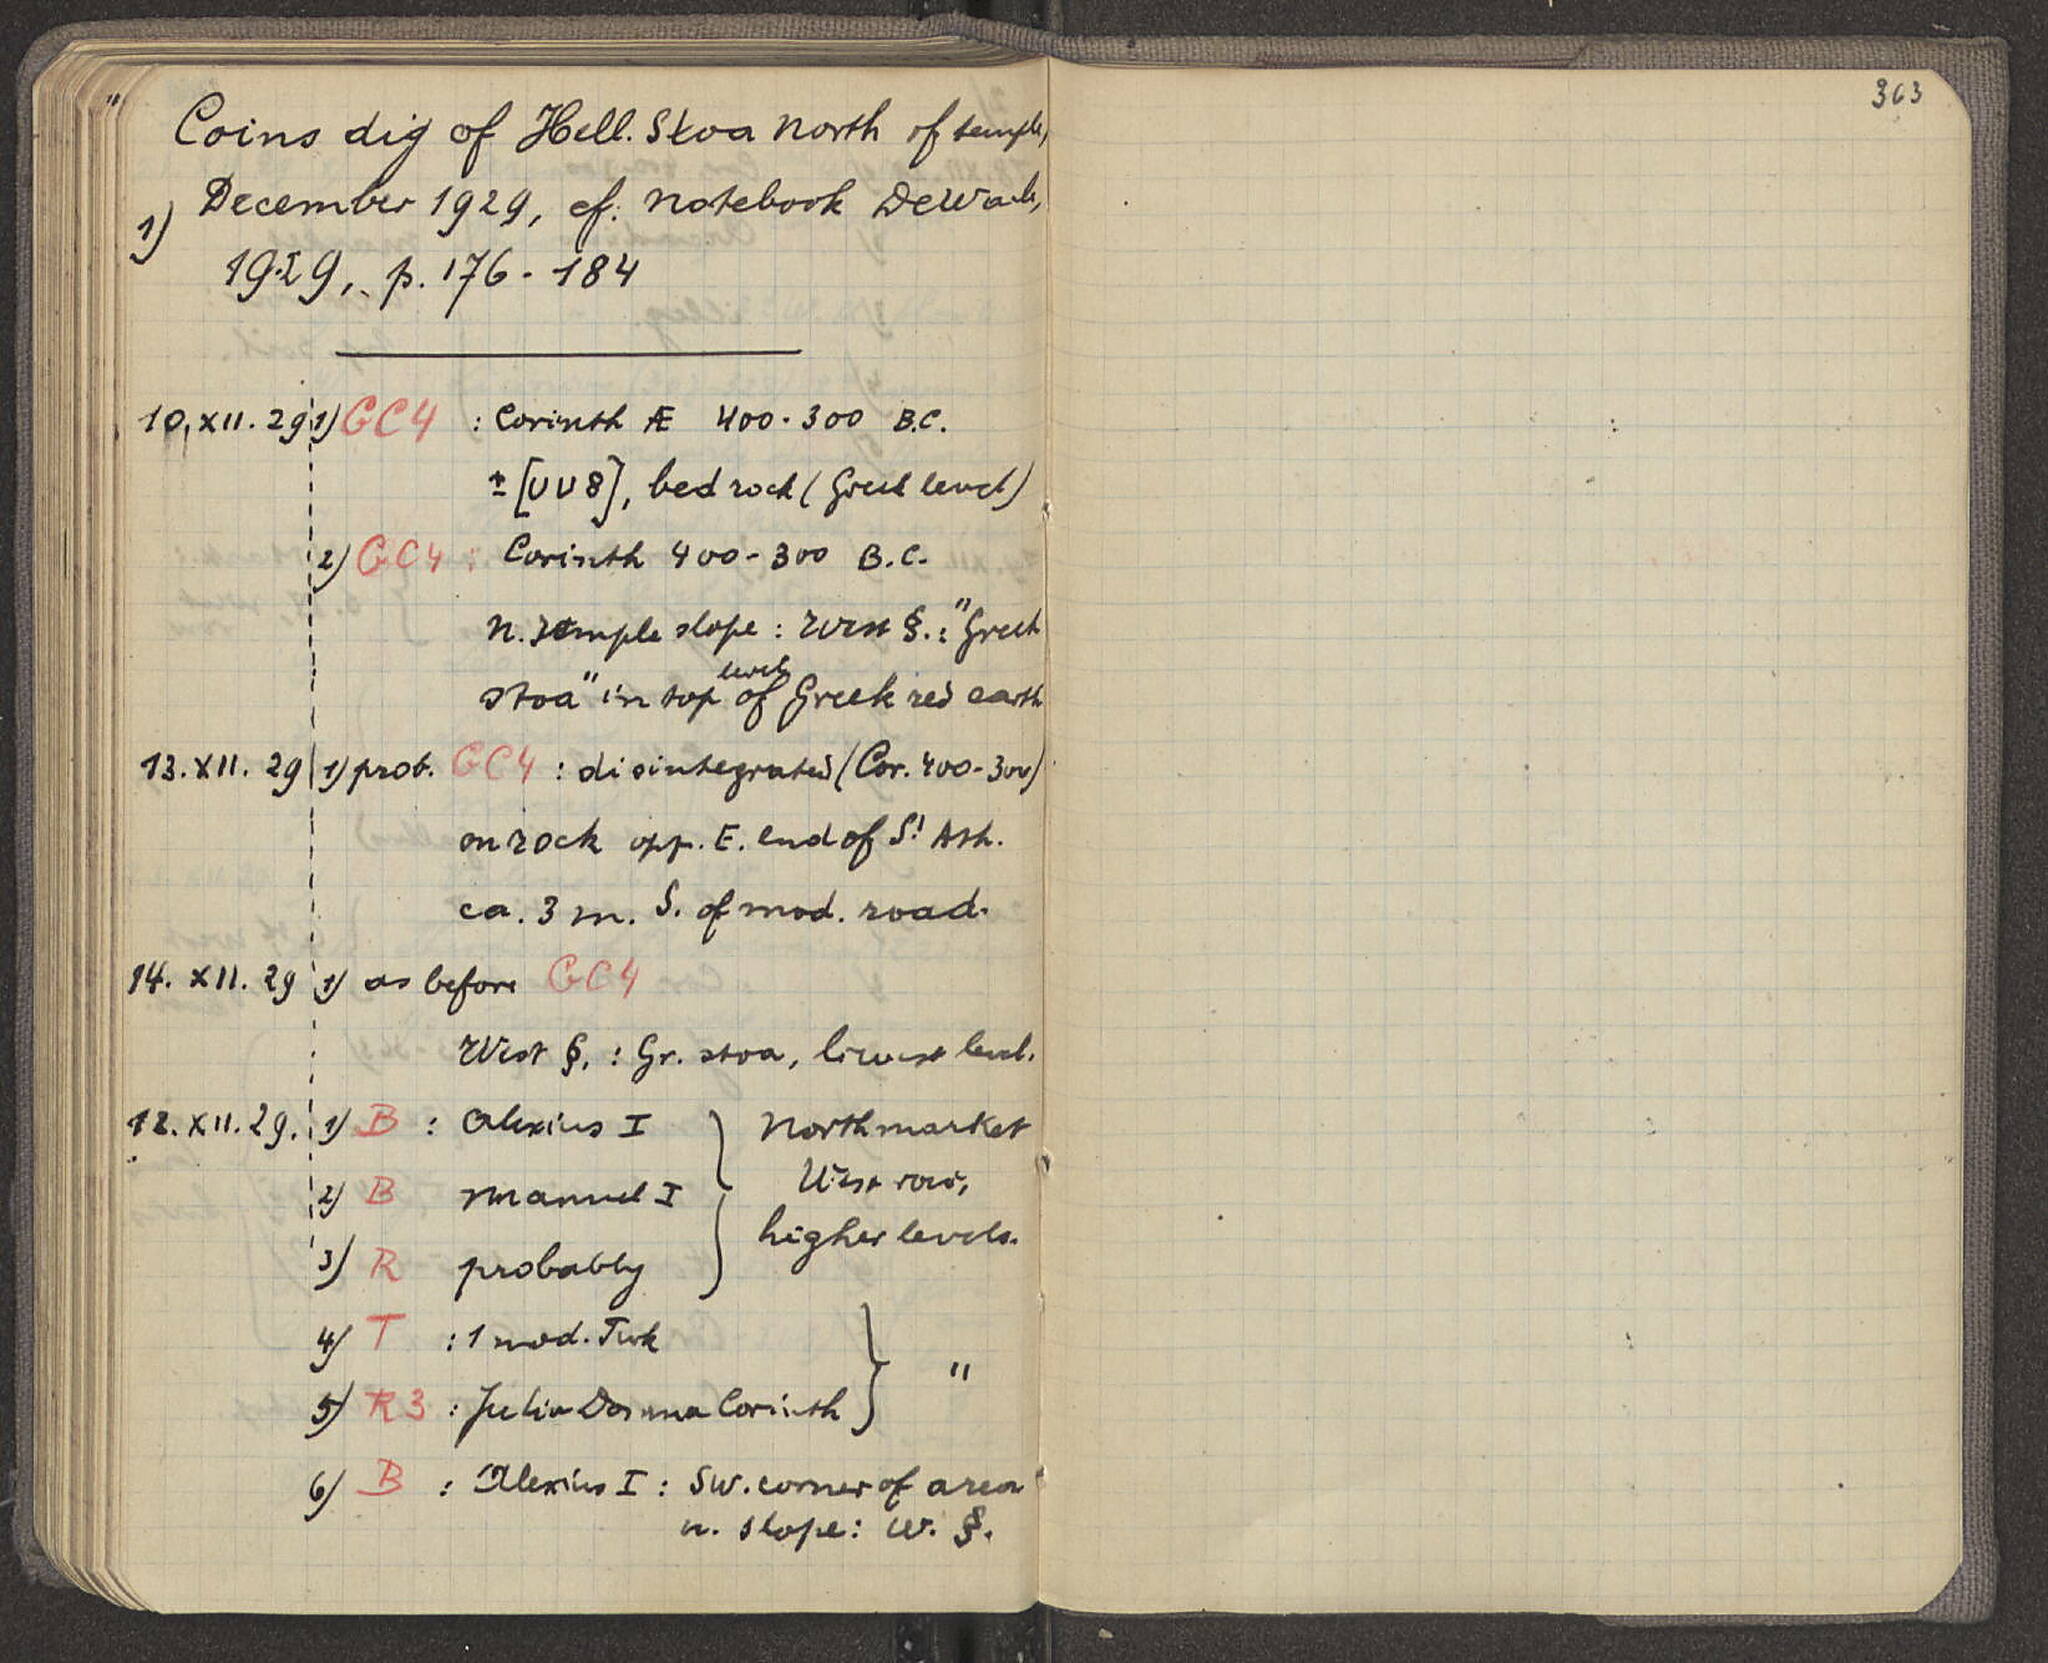 Coins dig of Hell. Stoa North of temple,
1) December 1929, cf. Notebook DeWaele,
1929, p. 176-184
10.XII.29 1) GC4 : Corinth Æ 400-300 B.C.
± [UU8], bed rock (Greek level)
2) GC4 : Corinth 400-300 B.C.
N. temple slope: West §.: "Greek
level
stoa" in top of Greek red earth
13.XII.29 1) prob. GC4 : disintegrated (Cor. 400-300)
on rock opp. E. end of St Ath.
ca. 3 m. S. of mod. road.
14.XII.29 1) as before GC4
West §. : Gr. stoa, lowest level.
12.XII.29. 1) B : Alexius I } North market
2) B Manuel I West row,
3) R probably } higher levels.
4) T : 1 mod. Turk
5) R3 : Julia Domna Corinth } "
6) B : Alexius I : SW. corner of area
n. slope: W. §.
303